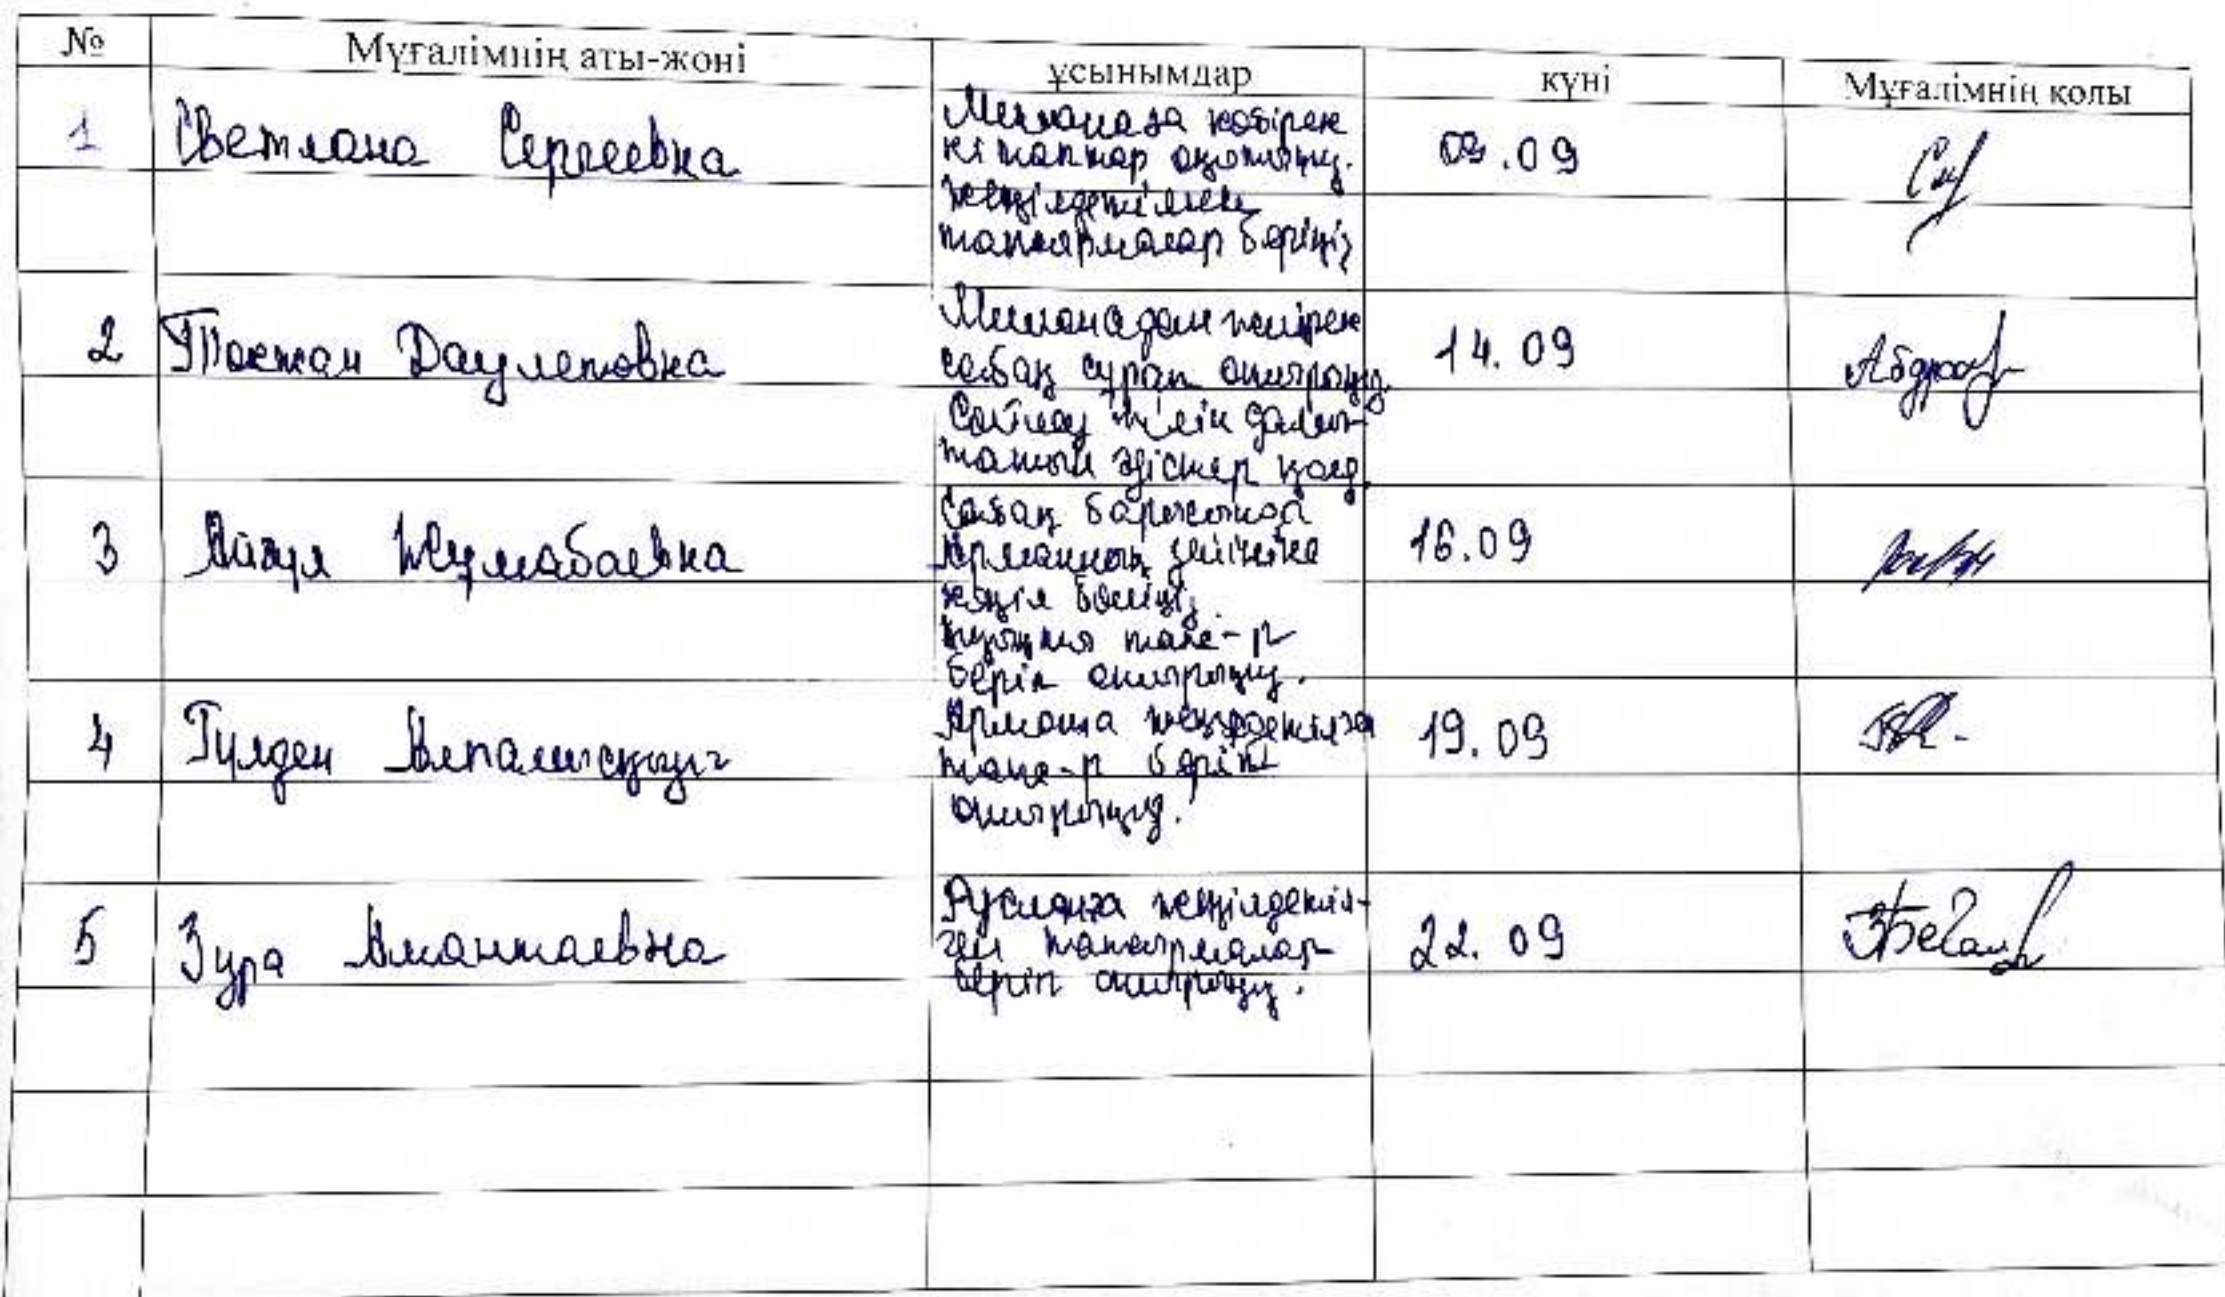 № Мұғалімнің аты-жөні ұсынымдар күні Мұғалімнің қолы
1 Светлана Сергеевна 09.09
Миланаға көбірек
кітаптар оқытыңыз.
Жеңілдетілген
тапсырмалар беріңіз
2 Тоқжан Даулетовна 14.09
Миланадан жиірек
сабақ сұрап отырыңыз.
Сөйлеу тілін дамы-
татын әдістер қолд.
3 Айгүл Жумабаевна 16.09
Сабақ барысында
Арманның зейініне
көңіл бөліңіз.
тапс-р
беріп отырыңыз.
4 Гүлден Алпамысқызы 19.09
Арманға жеңілдетілген
тапс-р беріп
отырыңыз.
5 Зура Амантаевна 22.09
Русланға жеңілдетіл-
ген тапсырмалар
беріп отырыңыз.